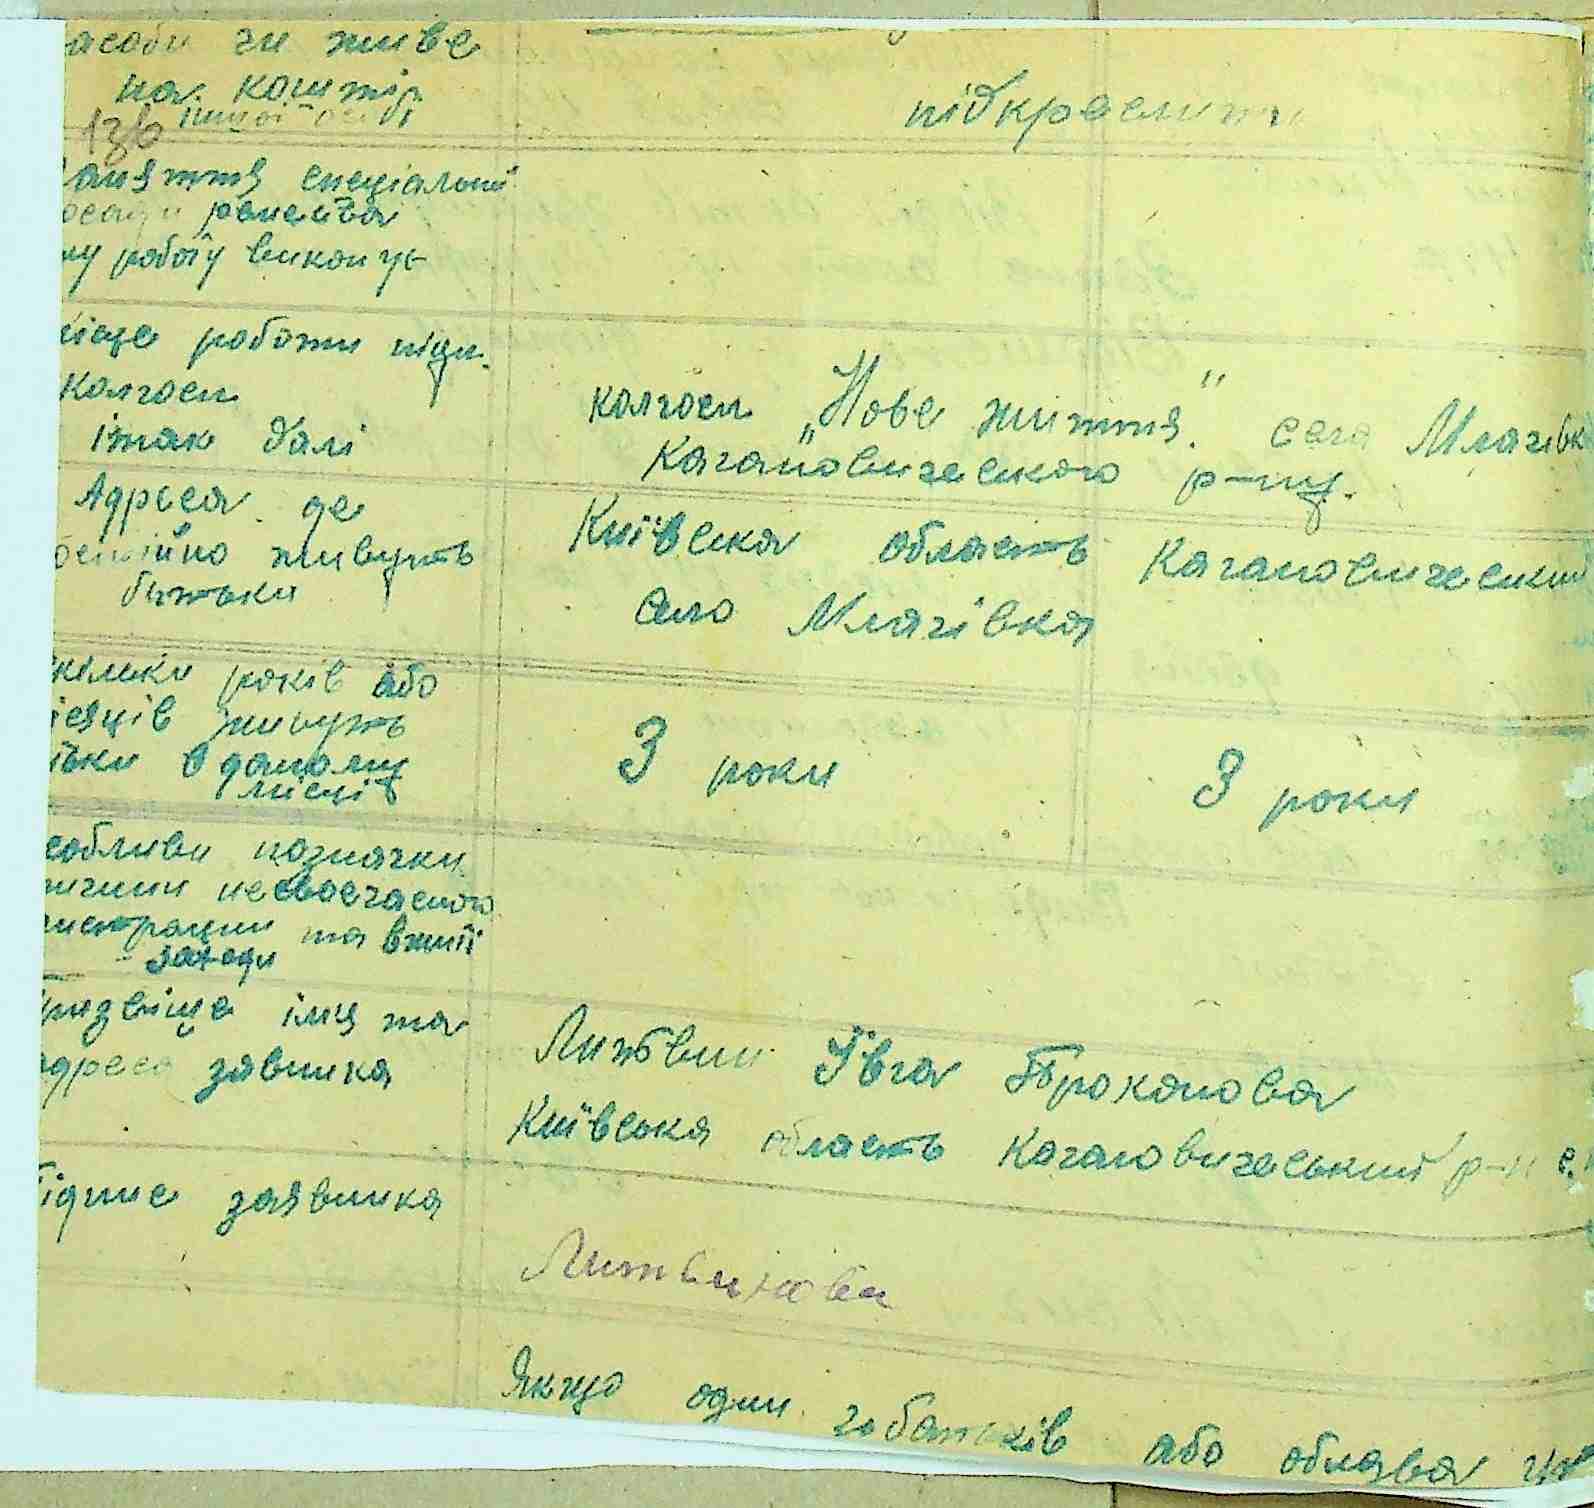 асоби чи живе
на кошти
іншої особи
підкреслити
136
аняття спеціальні
посади ремества
яку роботу виконує
місце роботи підп.
колгосп
і так далі
колгосп „Нове життя" села Млачівк
Кагановичеського р-ну.
Адреса де
постійно живуть
батьки
Київська область Кагановичеський
село Млачівка
кільки років або
ісяців живуть
тьки в даному
місці
3 роки
3 роки
собливи позначки
ричини несвоєчасного
єстрации та вжиті
заходи
ризвіще імя та
адреса завника
Литвин Ївга Проканова
Київська область Кагановичеський р-н с.
ідпис заявника
Литвинова
Якщо один з батьків або обидва